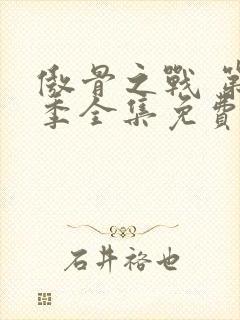 傲骨之戰 第
季全集免費
石井裕也